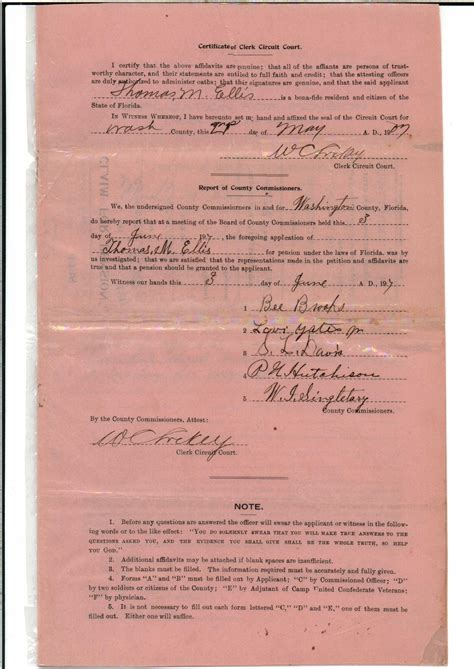 Certificate of Clerk Circuit Court.
I certify that the above affidavits are genuine; that all of the affiants are persons of trust-
worthy character, and their statements are entitled to full faith and credit; that the attesting officers
are duly authorized to administer oaths; that their signatures are genuine, and that the said applicant
Thomas M. Ellis is a bona-fide resident and citizen of the
State of Florida.
In Witness Whereof, I have hereunto set my hand and affixed the seal of the Circuit Court for
Wash County, this day of May A. D., 1907
W C Lockey
Clerk Circuit Court.
Report of County Commissioners.
We, the undersigned County Commissioners in and for Washington County, Florida,
do hereby report that at a meeting of the Board of County Commissioners held this 3
day of June 1907, the foregoing application of
Thomas, M. Ellis for pension under the laws of Florida. was by
us investigated; that we are satisfied that the representations made in the petition and affidavits are
true and that a pension should be granted to the applicant.
Witness our hands this 3 day of June A. D., 1907
1 Bee Brooks
2 Levi Yates Jr
3 S. L. Davis
4 P N Hutchison
5 W. J. Singletary
County Commissioners.
By the County Commissioners, Attest:
W C Lockey
Clerk Circuit Court.
NOTE.
1. Before any questions are answered the officer will swear the applicant or witness in the follow-
ing words or to the like effect: "You do solemnly swear that you will make true answers to the
questions asked you, and the evidence you shall give shall be the whole truth, so help
you God."
2. Additional affidavits may be attached if blank spaces are insufficient.
3. The blanks must be filled. The information required must be accurately and fully given.
4. Forms "A" and "B" must be filled out by Applicant; "C" by Commissioned Officer; "D"
by two soldiers or citizens of the County; "E" by Adjutant of Camp United Confederate Veterans:
"F" by physician.
5. It is not necessary to fill out each form lettered "C," "D" and "E," one of them must be
filled out. Either one will suffice.